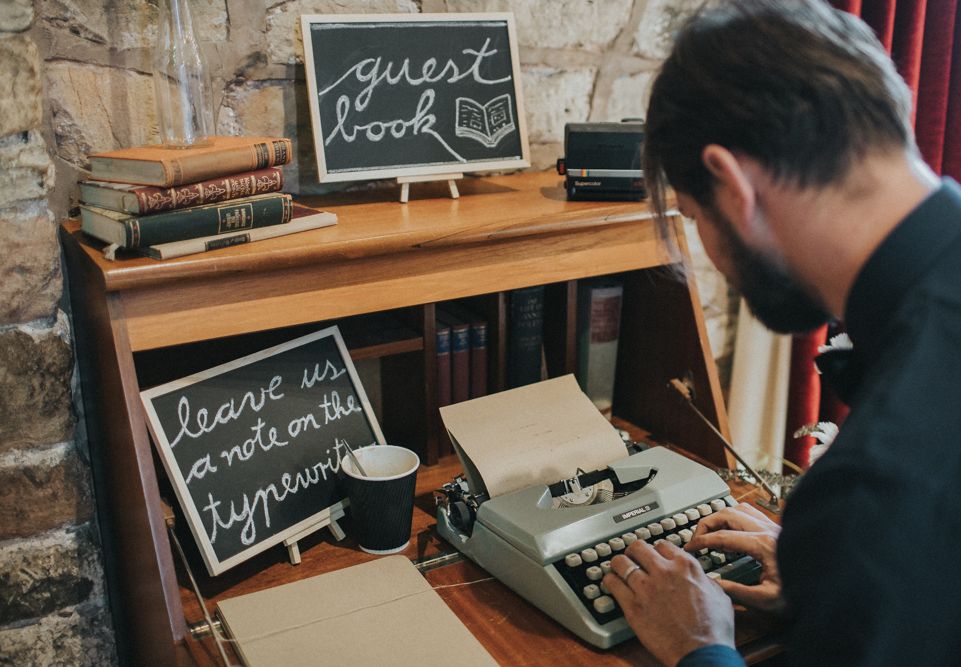 guest
book
Supercolor
leave us
a note on the
typewrit
IMPERIAL